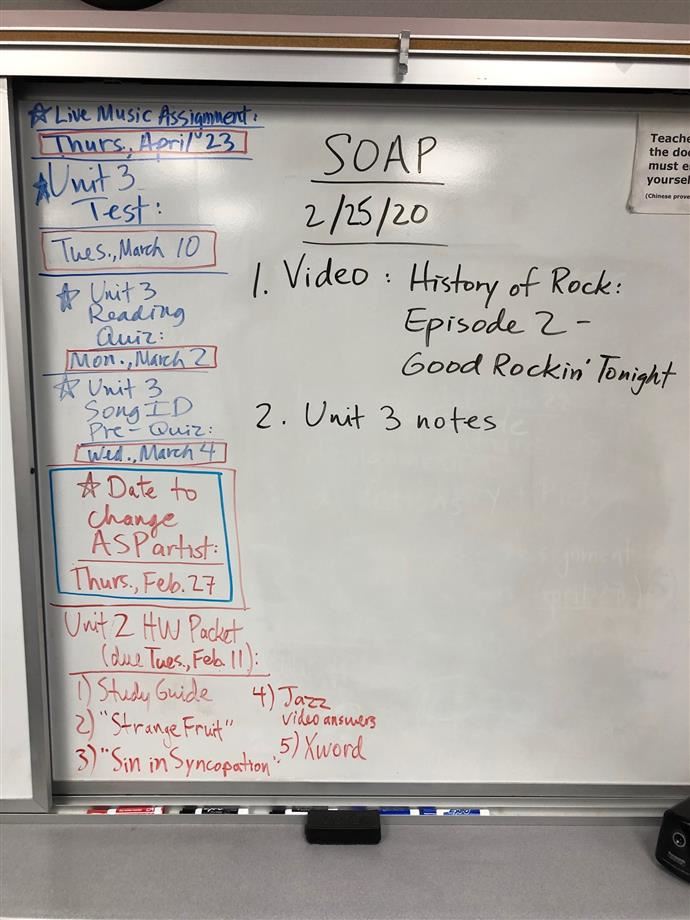 ☆ Live Music Assignment:
Thurs., April 23
☆ Unit 3
Test:
Tues., March 10
☆ Unit 3
Reading
Quiz:
Mon., March 2
☆ Unit 3
Song ID
Pre-Quiz:
Wed., March 4
☆ Date to
change
ASP artist:
Thurs., Feb. 27
Unit 2 HW Packet
(due Tues., Feb. 11):
1) Study Guide
2) "Strange Fruit"
3) "Sin in Syncopation"
4) Jazz
video answers
5) Xword
SOAP
2/25/20
1. Video: History of Rock:
Episode 2 -
Good Rockin' Tonight
2. Unit 3 notes
Teache
the doo
must e
yoursel
(Chinese prove